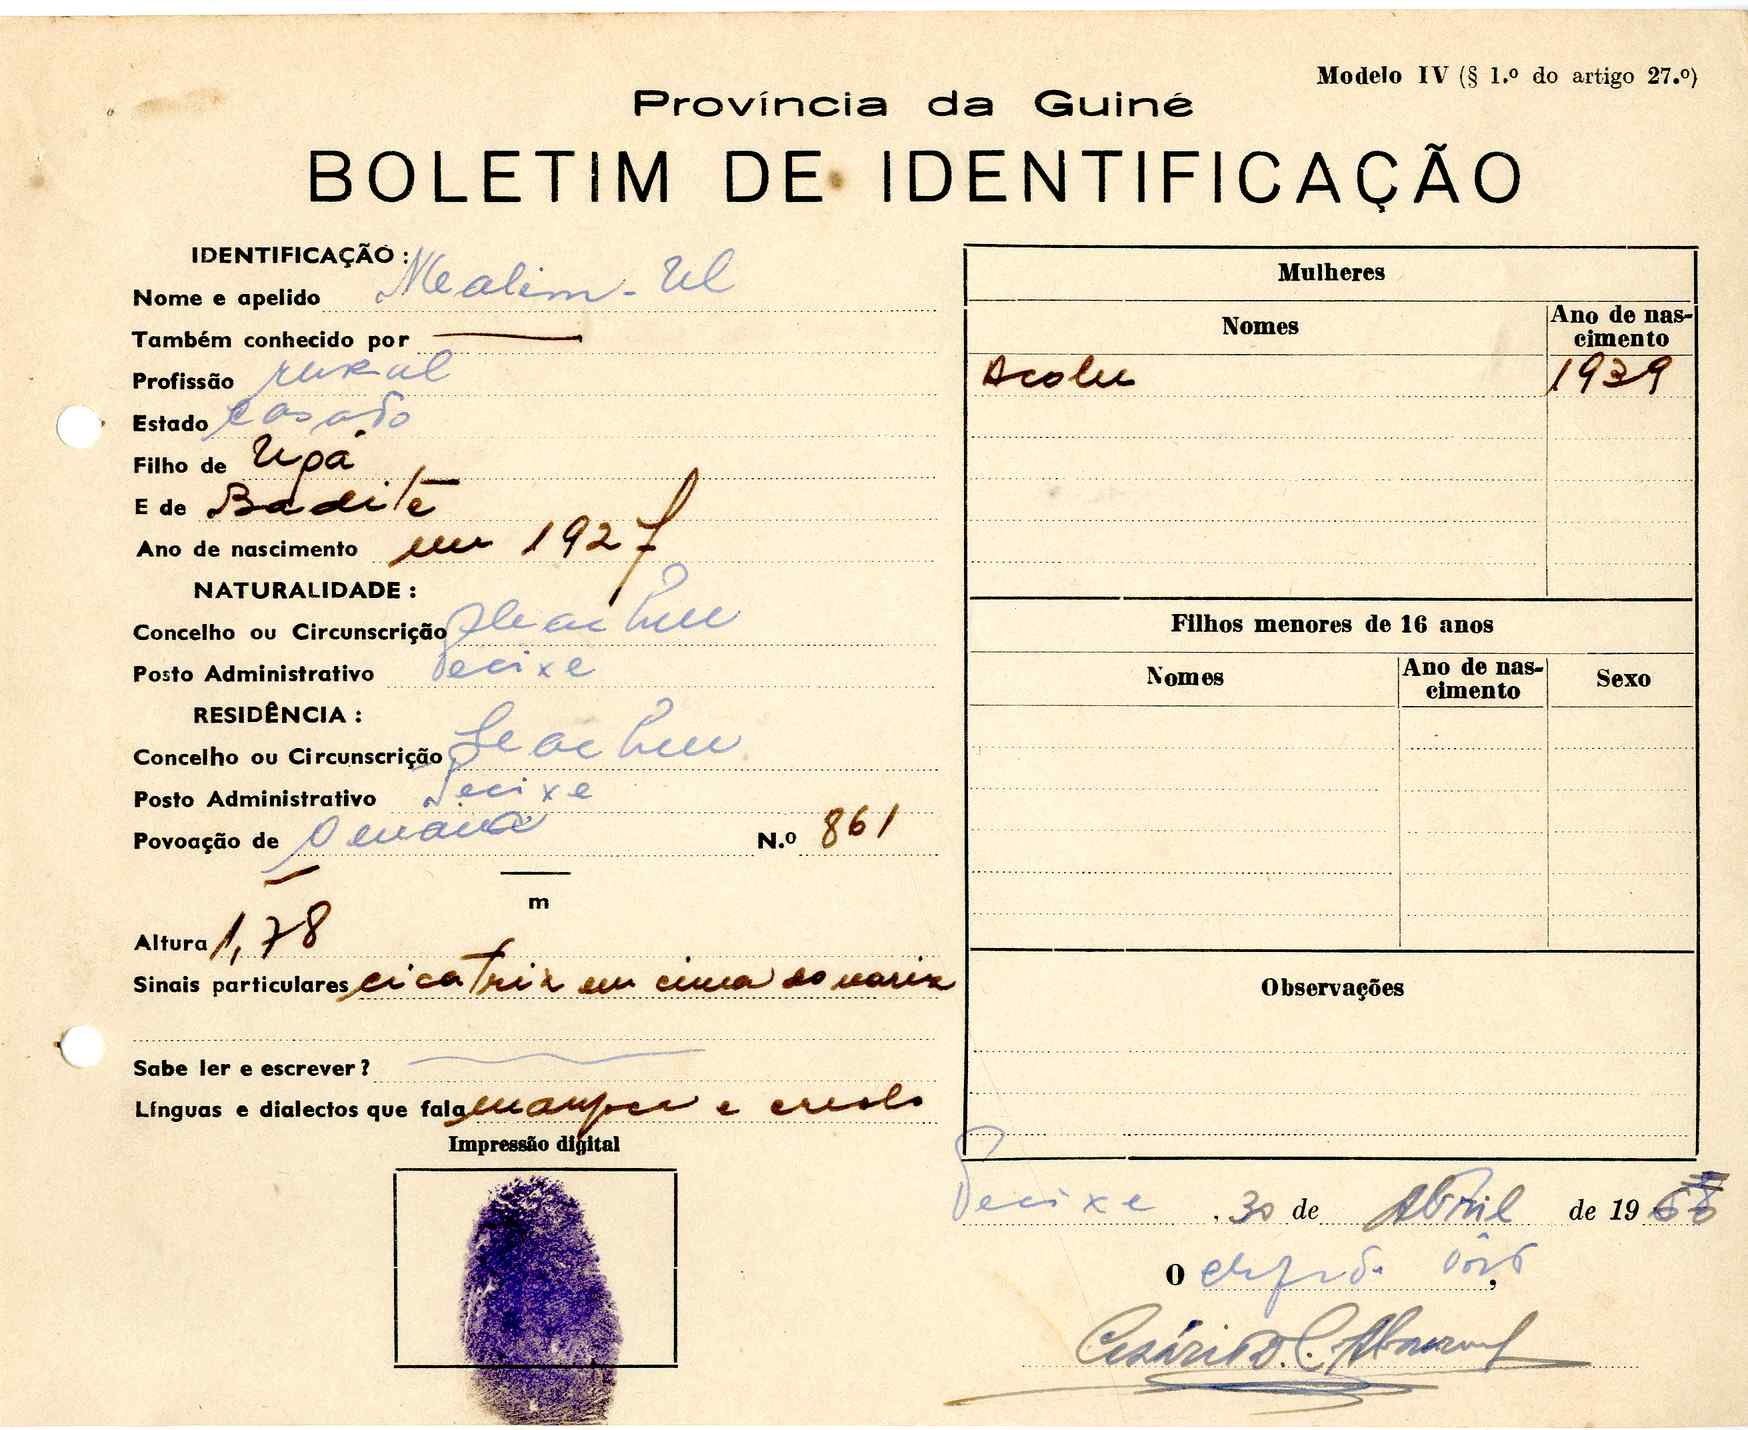 Modelo IV (§ 1.º do artigo 27.º)
Província da Guiné
BOLETIM DE IDENTIFICAÇÃO
IDENTIFICAÇÃO :
Nome e apelido Mealim - Ul
Também conhecido por
Profissão rural
Estado casado
Filho de Upá
E de Badité
Ano de nascimento em 1927
NATURALIDADE :
Concelho ou Circunscrição Cacheu
Posto Administrativo Pecixe
RESIDÊNCIA :
Concelho ou Circunscrição Cacheu
Posto Administrativo Pecixe
Povoação de N.º 861
m
Altura 1,78
Sinais particulares cicatriz em cima do nariz
Sabe ler e escrever ?
Línguas e dialectos que fala e creolo
Impressão digital
Mulheres
Nomes
Ano de nas-
cimento
Acolu 1939
Filhos menores de 16 anos
Nomes
Ano de nas-
cimento
Sexo
Observações
Pecixe, 30 de Abril de 19
O
Cesário D. C.